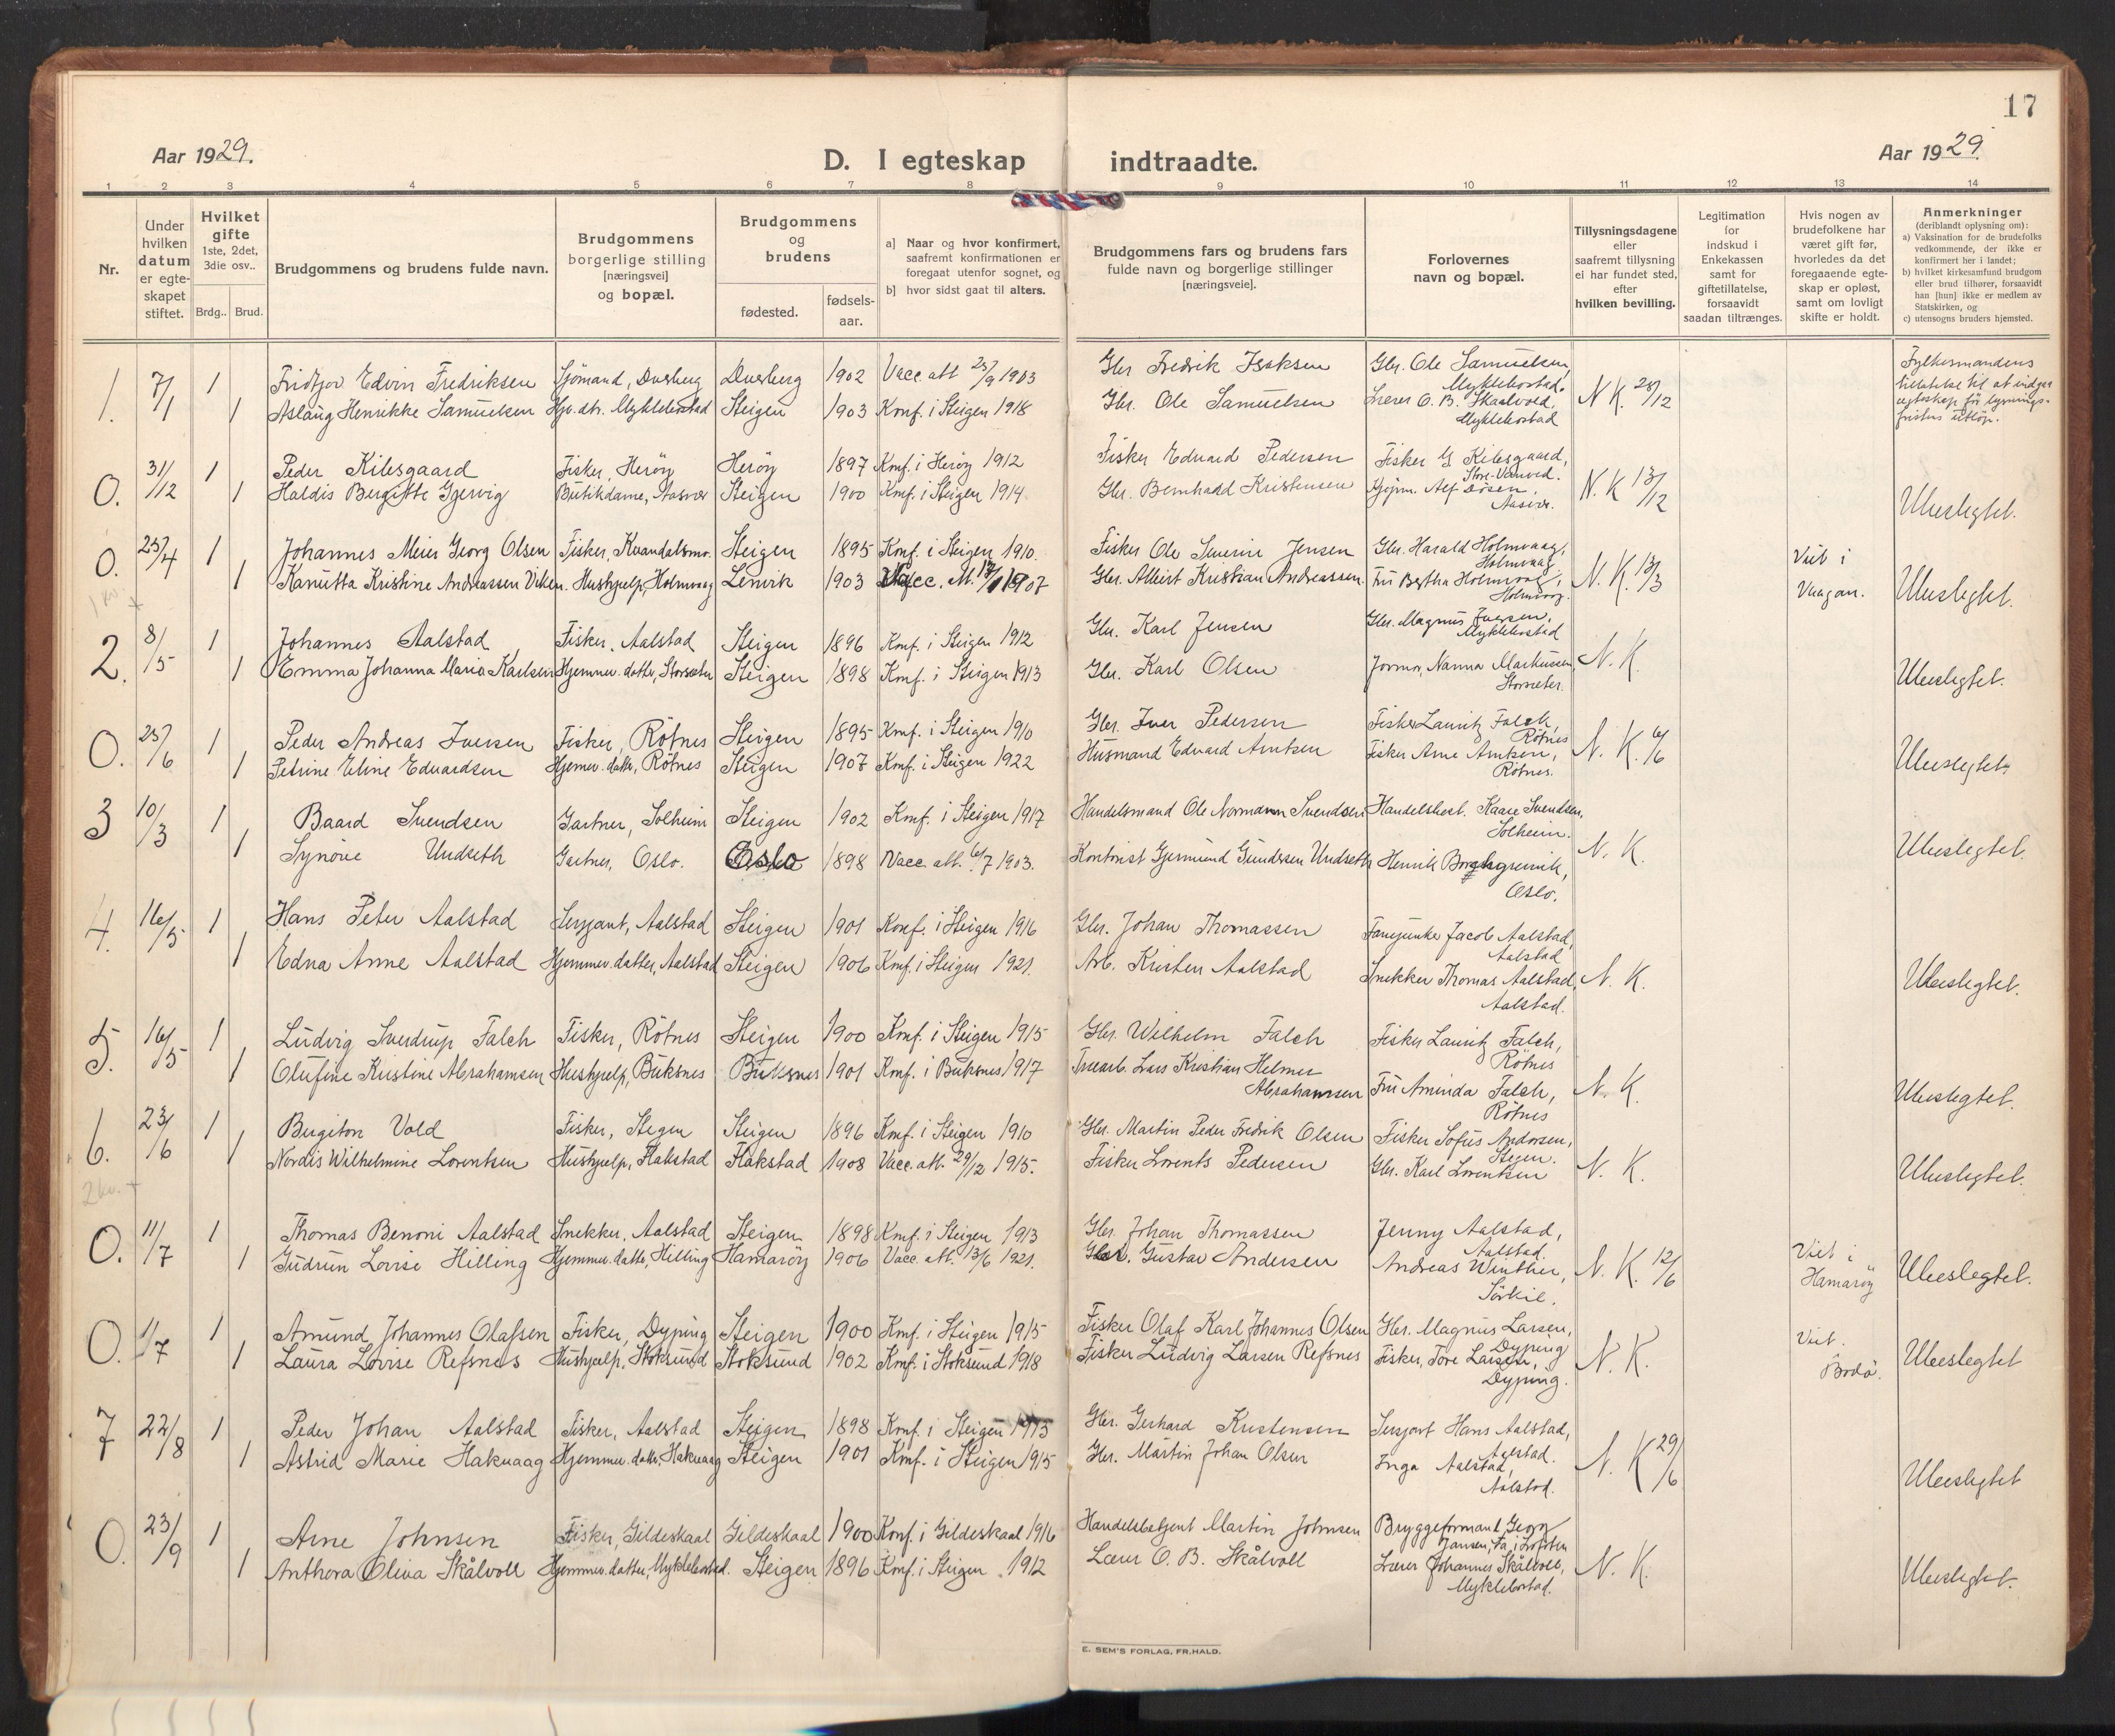 17
Aar 1929.
D. I egteskap indtraadte.
Aar 1929.
1 2 3 4 5 6 7 8 9 10 11 12 13 14
Nr.
Under hvilken datum er egte-skapet stiftet.
Hvilket gifte 1ste, 2det, 3die osv..
Brdg.. Brud.
Brudgommens og brudens fulde navn.
Brudgommens borgerlige stilling [næringsvei] og bopæl.
Brudgommens og brudens
fødested.
fødsels-aar.
a] Naar og hvor konfirmert, saafremt konfirmationen er foregaat utenfor sognet, og
b] hvor sidst gaat til alters.
Brudgommens fars og brudens fars fulde navn og borgerlige stillinger [næringsveie].
Forlovernes navn og bopæl.
Tillysningsdagene eller saafremt tillysning ei har fundet sted, efter hvilken bevilling.
Legitimation for indskud i Enkekassen samt for giftetillatelse, forsaavidt saadan tiltrænges.
Hvis nogen av brudefolkene har været gift før, hvorledes da det foregaaende egte-skap er opløst, samt om lovligt skifte er holdt.
Anmerkninger (deriblandt oplysning om): a) Vaksination for de brudefolks vedkommende, der ikke er konfirmert her i landet; b) hvilket kirkesamfund brudgom eller brud tilhører, forsaavidt han [hun] ikke er medlem av Statskirken, og c) utensogns bruders hjemsted.
1. 7/1 1 Fridtjov Edvin Fredriksen Sjömand, Dverberg Dverberg 1902 Vacc. att 23/9 1903 Gbr Fredrik Isaksen Gbr. Ole Samuelsen, Myklebostad.
1 Aslaug Henrikke Samuelsen Hjv. dtr. Myklebostad Steigen 1903 Konf. i Steigen 1918 Gbr. Ole Samuelsen Lærer O. B. Skaalvold, Myklebostad N K. 28/12
Fylkesmandens tillatelse til at indgaa egteskap för lysnings-fristens utlöp.
0. 31/12 1 Peder Kilesgaard Fisker, Heröy Heröy 1897 Konf. i Heröy 1912 Fisker Edvard Pedersen Fisker G Kilesgaard,
1 Haldis Bergitte Gjervig Butikdame, Aasvær Steigen 1900 Konf. i Steigen 1914 Gbr. Bernhard Kristensen Kjöpm. Alf Dösen, Aasvær. N. K 13/12 Ubeslegtet.
0. 23/4 1 Johannes Meier Georg Olsen Fisker, Kvandalsmo. Steigen 1895 Konf. i Steigen 1910. Fisker Ole Severin Jensen Gbr. Harald Holmvaag, Holmvaag.
1 Kanutta Kristine Andreassen Viken. Hushjelp, Holmvaag Lenvik 1903 Vacc. att. 1907 Gbr. Albert Kristian Andreassen. Fru Bertha Holmvaag, Holmvaag. N. K. 13/3 Viet i Vaagan. Ubeslegtet.
1 kv. +
2. 8/5 1 Johannes Aalstad Fisker, Aalstad Steigen 1896 Konf. i Steigen 1912 Gbr. Karl Jensen Gbr. Magnus Iversen, Myklebostad
1 Emma Johanna Maria Karlsen Hjemmev. datter, Storsæter Steigen 1898 Konf. i Steigen 1913 Gbr. Karl Olsen Jormor, Nanna Markussen, Storsæter. N. K. Ubeslegtet.
0. 23/6 1 Peder Andreas Iversen Fisker, Rötnes Steigen 1895 Konf. i Steigen 1910 Gbr. Iver Pedersen Fisker Lauritz Falch, Rötnes
1 Petrine Eline Edvardsen Hjemev. datter, Rötnes Steigen 1907 Konf. i Steigen 1922 Husmand Edvard Arntsen Fisker Arne Arntsen, Rötnes. N. K. 6/6 Ubeslegtet.
3 10/3 1 Baard Svendsen Gartner, Solheim Steigen 1902 Konf. i Steigen 1917 Handelsmand Ole Normann Svendsen Handelsbest. Kaare Svendsen, Solheim.
1 Synöve Undseth Gartner, Oslo. Oslo 1898 Vacc. att. 6/7 1903. Kontorist Gjermund Gundersen Undseth Henrik Borchgrevink, Oslo. N. K. Ubeslegtet.
4. 16/5 1 Hans Peter Aalstad Sersjant, Aalstad Steigen 1901 Konf. i Steigen 1916 Gbr. Johan Thomassen Fanejunker Jacob Aalstad, Aalstad
1 Edna Anne Aalstad Hjemmev. datter, Aalstad Steigen 1906 Konf. i Steigen 1921. Arb. Kristen Aalstad Snekker Thomas Aalstad, Aalstad. N. K. Ubeslegtet.
5. 16/5 1 Ludvig Sverdrup Falch Fisker, Rötnes Steigen 1900 Konf. i Steigen 1915 Gbr. Wilhelm Falch Fisker Lauritz Falch, Rötnes
1 Olufine Kristine Abrahamsen Hushjelp, Buksnes Buksnes 1901 Konf. i Buksnes 1917 Trearb. Lars Kristian Helmer Abrahamsen Fru Aminda Falch, Rötnes N. K. Ubeslegtet.
6. 23/6 1 Bergiton Vold Fisker, Stegen Steigen 1896 Konf. i Steigen 1910 Gbr. Martin Peder Fredrik Olsen Fisker Sofus Andorsen, Stegen.
1 Nordis Wilhelmine Lorentsen Hushjelp, Flakstad Flakstad 1908 Vacc. att. 29/12 1915. Fisker Lorents Pedersen Gbr. Karl Lorentsen N. K. Ubeslegtet.
2 kv. +
0. 11/7 1 Thomas Benoni Aalstad Snekker, Aalstad Steigen 1898 Konf. i Steigen 1913 Gbr. Johan Thomassen Jenny Aalstad, Aalstad.
1 Gudrun Lovise Hilling Hjemmev. datter, Hilling Hamaröy 1906 Vacc. att. 13/6 1921. Gbr. Gustav Andersen Andreas Winther, Sörkil. N. K. 12/6 Viet i Hamaröy Ubeslegtet.
0. 1/7 1 Amund Johannes Olafsen Fisker, Dyping Steigen 1900 Konf. i Steigen 1915 Fisker Olaf Karl Johannes Olsen Gbr. Magnus Larsen, Dyping
1 Laura Lovise Refsnes Hushjelp, Stoksund Stoksund 1902 Konf. i Stoksund 1918 Fisker Ludvig Larsen Refsnes Fisker, Tore Larsen, Dyping. N. K. Viet. Bodö. Ubeslegtet
7 22/8 1 Peder Johan Aalstad Fisker, Aalstad Steigen 1898 Konf. i Steigen 1913 Gbr. Gerhard Kristensen Sersjant Hans Aalstad, Aalstad.
1 Astrid Marie Hakvaag Hjemmev. datter, Hakvaag Steigen 1901 Konf. i Steigen 1915 Gbr. Martin Johan Olsen Inga Aalstad, Aalstad. N. K 29/6 Ubeslegtet
0. 23/9 1 Arne Johnsen Fisker, Gildeskaal Gildeskaal 1900 Konf. i Gildeskaal 1916 Handelsbetjent Martin Johnsen Bryggeformand Georg Jansen,
1 Anthora Oliva Skålvoll Hjemmev. datter, Myklebostad. Steigen 1896 Konf. i Steigen. 1912 Lærer O. B. Skålvoll Lærer Johannes Skålvoll, Myklebostad. N. K. Ubeslegtet.
E. SEM'S FORLAG, FR.HALD.